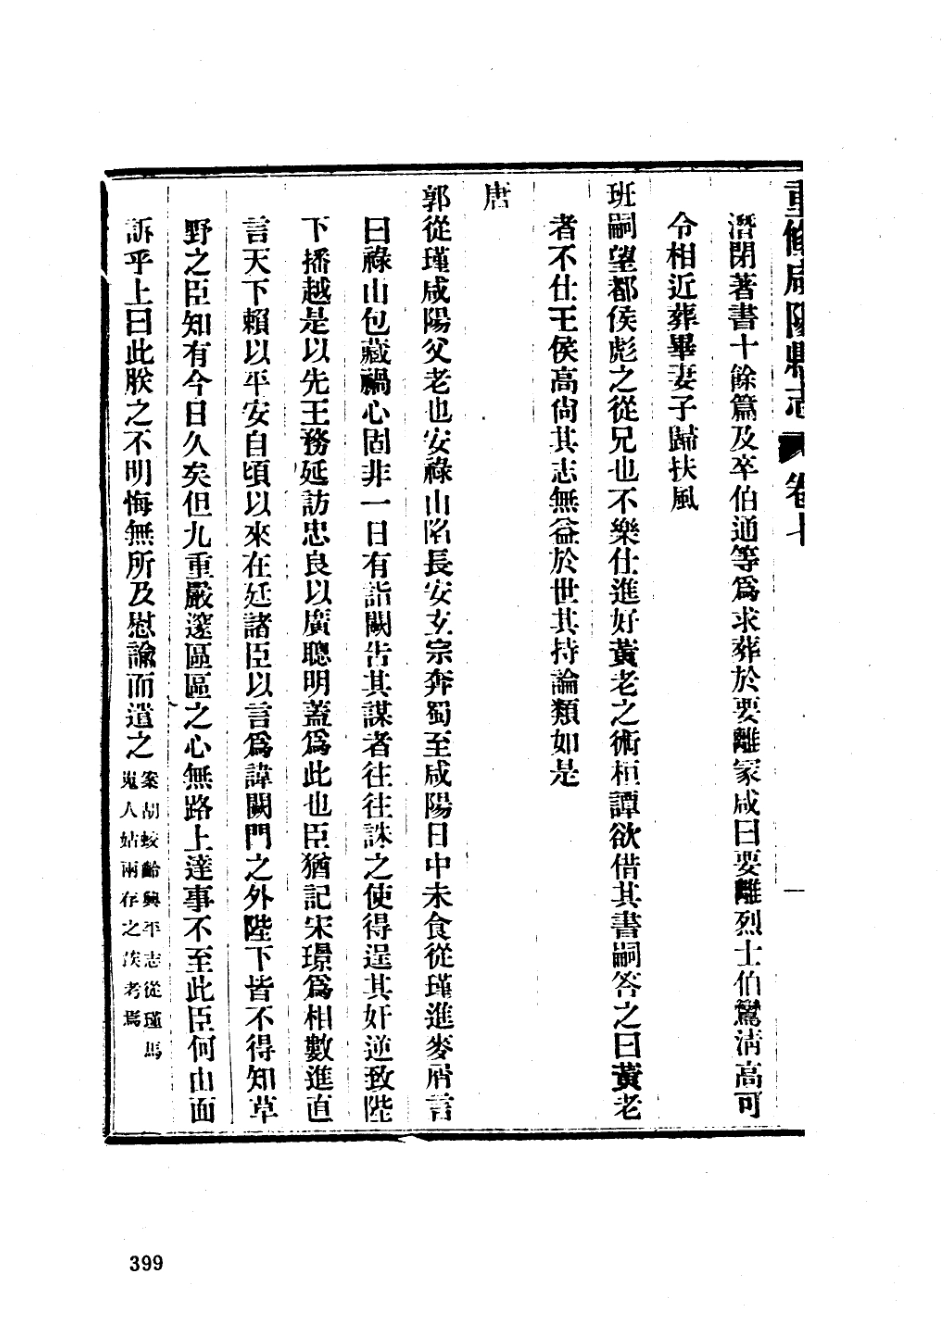 重修咸陽縣志 卷七
潛閉著書十餘篇及卒伯通等爲求葬於要離冢咸曰要離烈士伯鸞淸高可
令相近葬畢妻子歸扶風
班嗣望都侯彪之從兄也不樂仕進好黃老之術桓譚欲借其書嗣答之曰黃老
者不仕王侯高尙其志無益於世其持論類如是
唐
郭從瑾咸陽父老也安祿山陷長安玄宗奔蜀至咸陽日中未食從瑾進麥屑言
曰祿山包藏禍心固非一日有詣闕告其謀者往往誅之使得逞其奸逆致陛
下播越是以先王務延訪忠良以廣聰明蓋爲此也臣猶記宋璟爲相數進直
言天下賴以平安自頃以來在廷諸臣以言爲諱闕門之外陛下皆不得知草
野之臣知有今日久矣但九重嚴邃區區之心無路上達事不至此臣何由面
訴乎上曰此朕之不明悔無所及慰諭而遣之
案胡蛟齡興平志從瑾馬
嵬人姑兩存之俟考焉
399